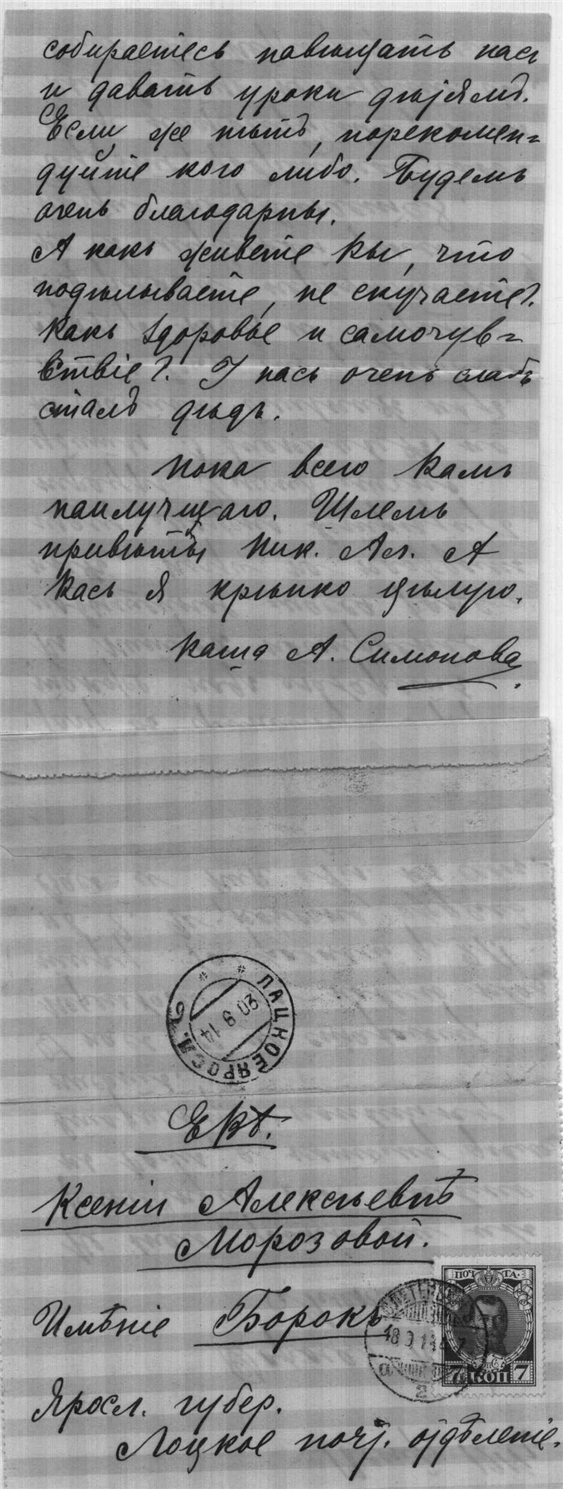 собираетесь навѣщать насъ
и давать уроки дѣтямъ.
Если же нѣтъ, порекомен=
дуйте кого либо. Будемъ
очень благодарны.
А какъ живете Вы, что
подѣлываете, не скучаете?
Какъ здоровье и самочув=
ствіе? У насъ очень слабъ
сталъ дѣдъ.
Пока всего Вамъ
наилучшаго. Шлемъ
привѣты Ник. Ал. А
Васъ я крѣпко цѣлую.
Ваша А. Симонова
ЛАЦКОЕ ЯРОСЛ.
20 9 14
Ксеніи Алексѣевнѣ
Морозовой.
ПОЧТА
Имѣніе Борокъ
18 9 14
7 КОП 7
Яросл. губер.
Лоцкое почт. отдѣленіе.